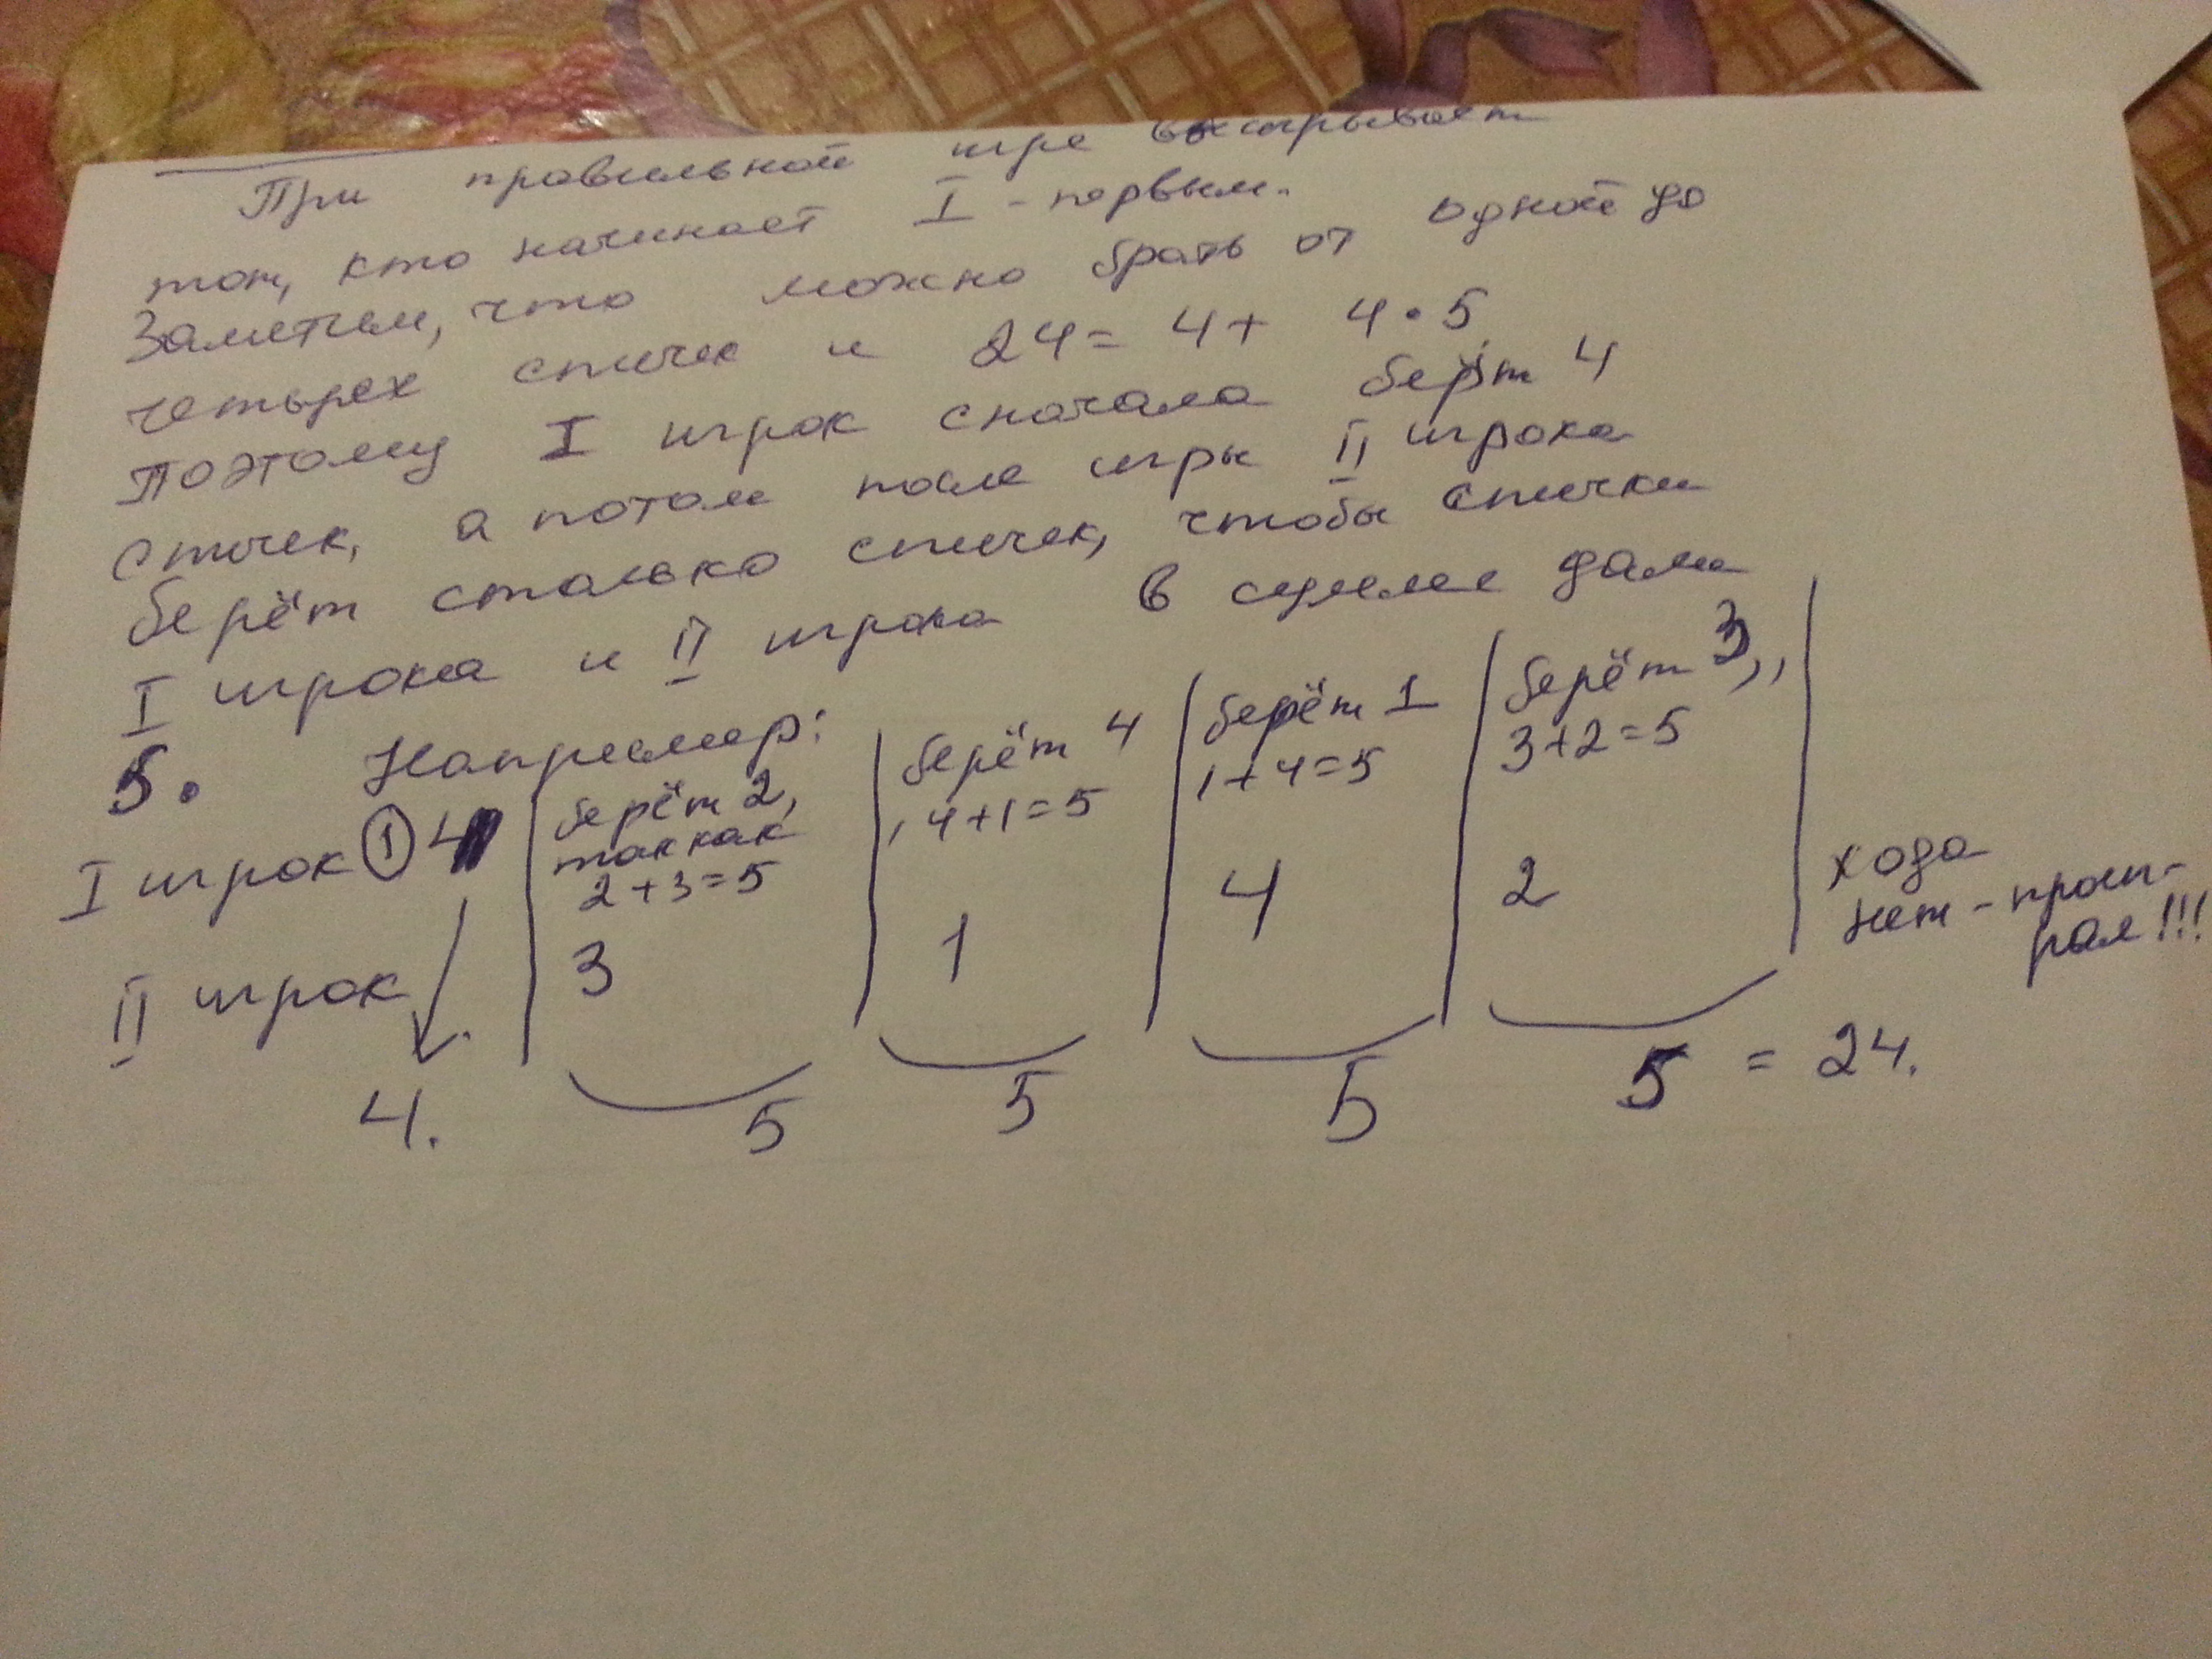 При правильной игре выигрывает
тот, кто начинает I - первым.
Заметим, что можно брать от одной до
четырех спичек и 24 = 4 + 4 · 5,
поэтому I игрок сначала берёт 4
спичек, а потом после игры II игрока
берёт столько спичек, чтобы спички
I игрока и II игрока в сумме дали
5. Например:
I игрок ① 4 | берёт 2, так как 2+3=5 | берёт 4, 4+1=5 | берёт 1 1+4=5 | берёт 3,, 3+2=5 |
II игрок | 3 | 1 | 4 | 2 | хода нет - проиграл!!!
4. 5 5 5 5 = 24.